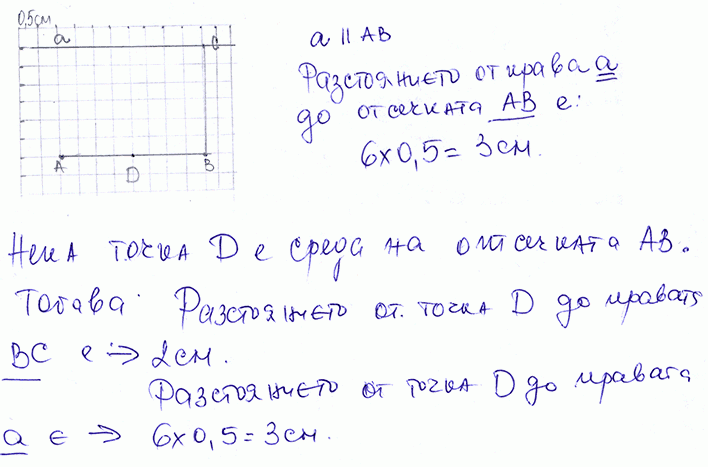 0,5см
a
C
A
D
B
a || AB
Разстоянието от права a
до отсечката AB е:
6x0,5 = 3 см.
Нека точка D е среда на отсечката AB.
Тогава: Разстоянието от точка D до правата
BC е => 2 см.
Разстоянието от точка D до правата
a е => 6x0,5 = 3 см.